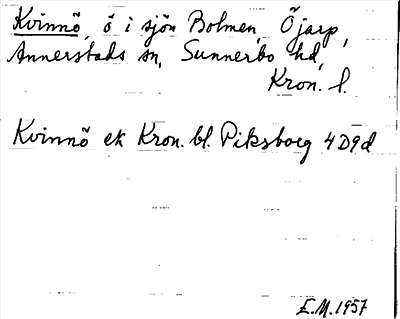 Kvinnö, ö i sjön Bolmen, Öjarp,
Annerstads sn, Sunnerbo hd,
Kron. l.
Kvinnö ek Kron. bl. Piksborg 4D9d
E.M. 1957